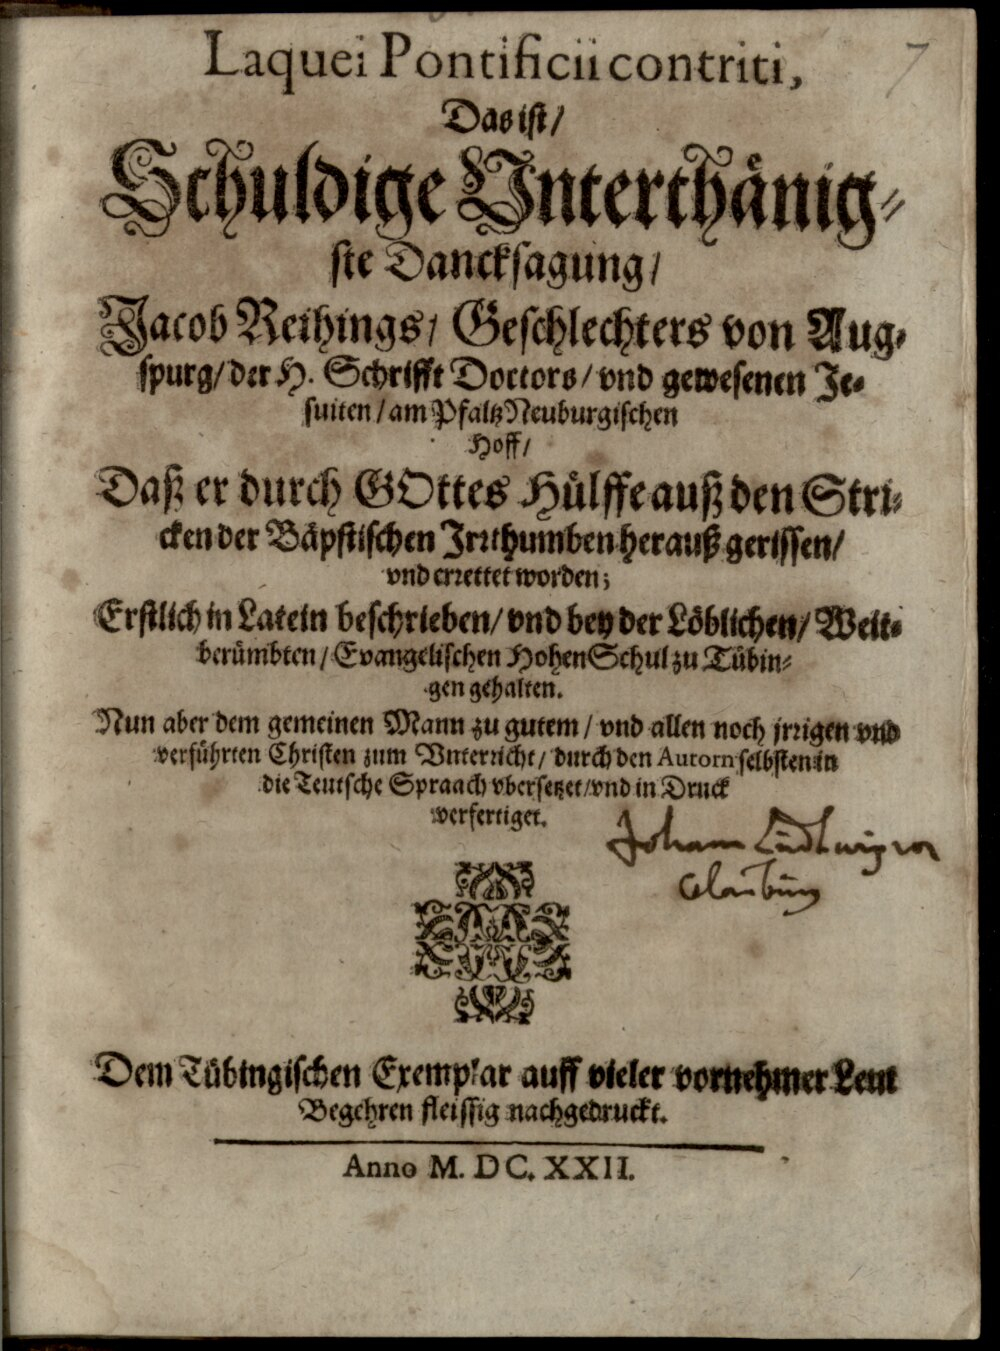 7
Laquei Pontificii contriti,
Das ist/
Schuldige Unterthänig-
ste Dancksagung/
Jacob Reihings/ Geschlechters von Aug-
spurg/ der H. Schrifft Doctors/ vnd gewesenen Je-
suiten/ am Pfaltz Neuburgischen
Hoff/
Daß er durch GOttes Hülffe auß den Stri-
cken der Bäpstischen Irrthumben herauß gerissen/
vnd errettet worden;
Erstlich in Latein beschrieben/ vnd bey der Löblichen/ Weit-
berümbten/ Evangelischen Hohen Schul zu Tübin-
gen gehalten.
Nun aber dem gemeinen Mann zu gutem/ vnd allen noch jrrigen vnd
verführten Christen zum Vnterricht/ durch den Autorn selbsten in
die Teutsche Spraach vbersetzet/ vnd in Druck
verfertiget.
Johann Ludwig von
Glauburg
Dem Tübingischen Exemplar auff vieler vornehmer Leut
Begehren fleissig nachgedruckt.
Anno M. DC. XXII.